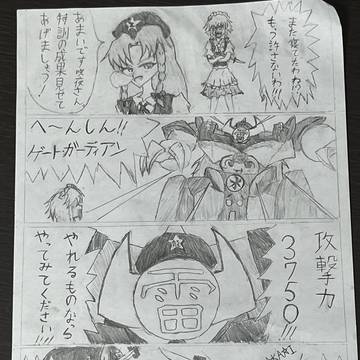 また寝てたわね!?
もう許さないわ!!!
あまいです咲夜さん
特訓の成果見せて
あげましょう!
へ〜んしん!!
ゲートガーディアン
攻撃力
3750!!!
雷
やれるものなら
やってみてください!!!